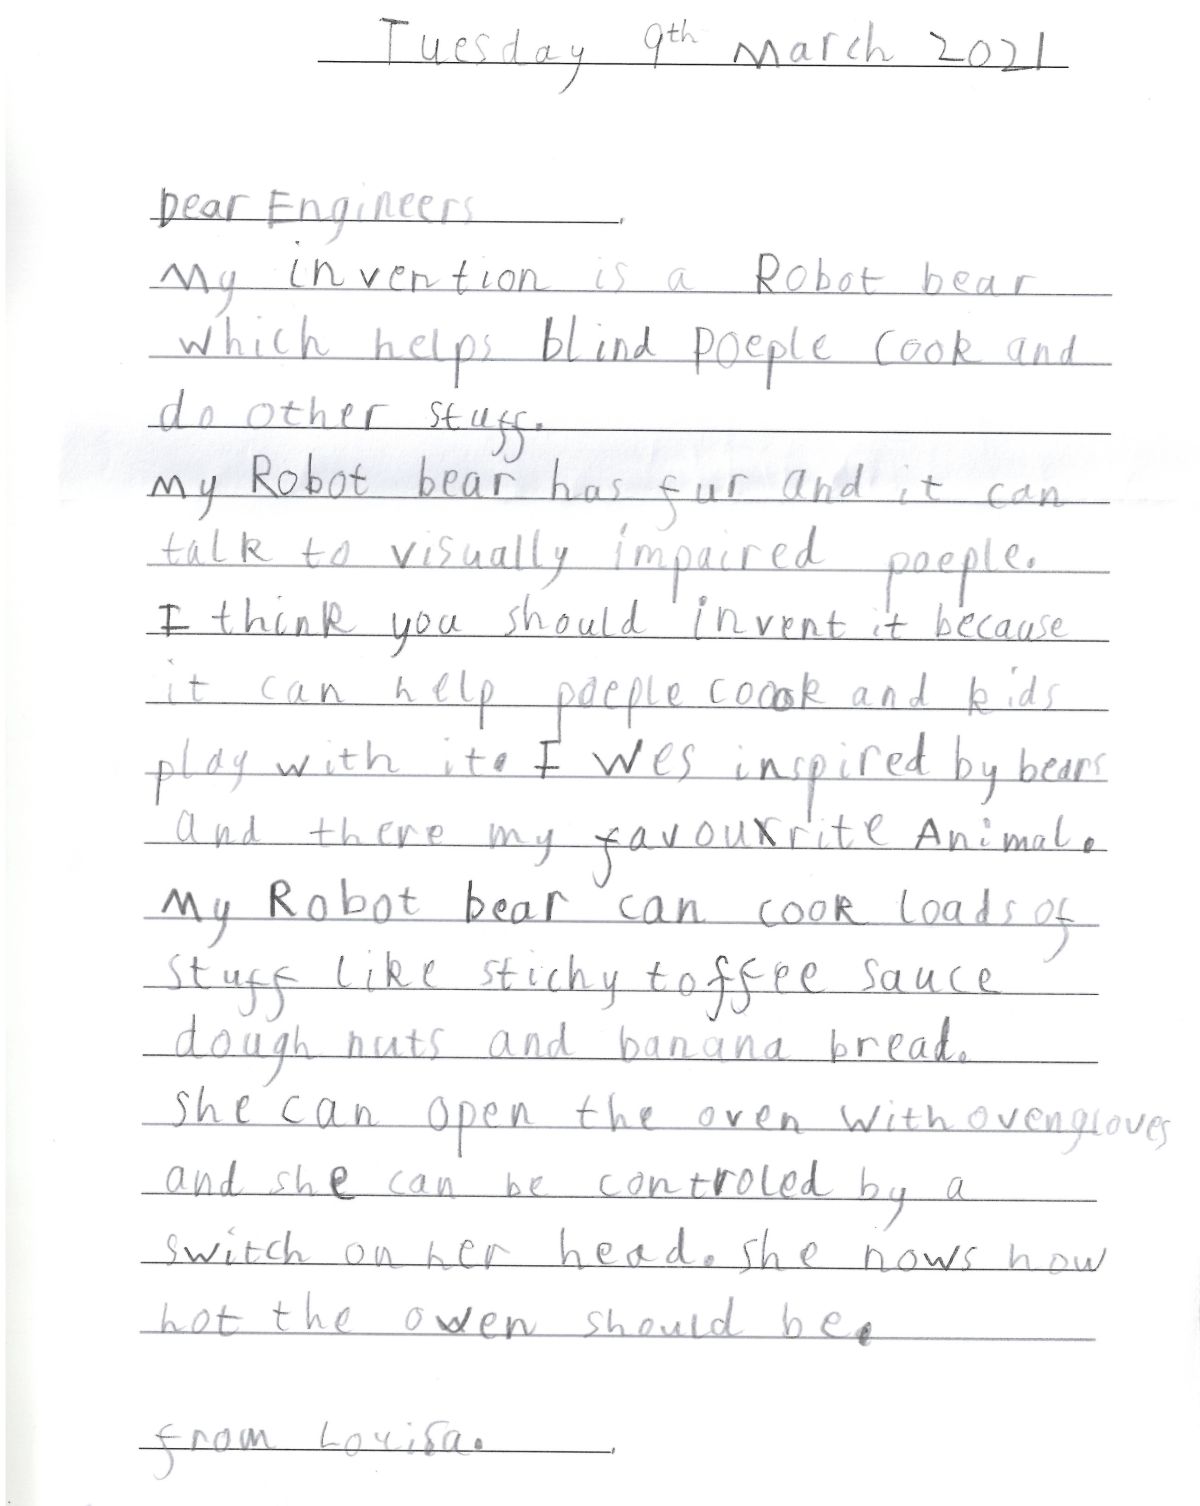 Tuesday 9th March 2021
Dear Engineers
My invention is a Robot bear
which helps blind poeple cook and
do other stuff.
My Robot bear has fur and it can
talk to visually impaired poeple.
I think you should invent it because
it can help poeple coook and kids
play with it. I wes inspired by bears
and there my favouxrite Animal.
My Robot bear can cook loads of
stuff like stichy toffee sauce
dough nuts and banana bread.
she can open the oven with ovengloves
and she can be controled by a
switch on her head. she nows how
hot the owen should be.
from Louisa.